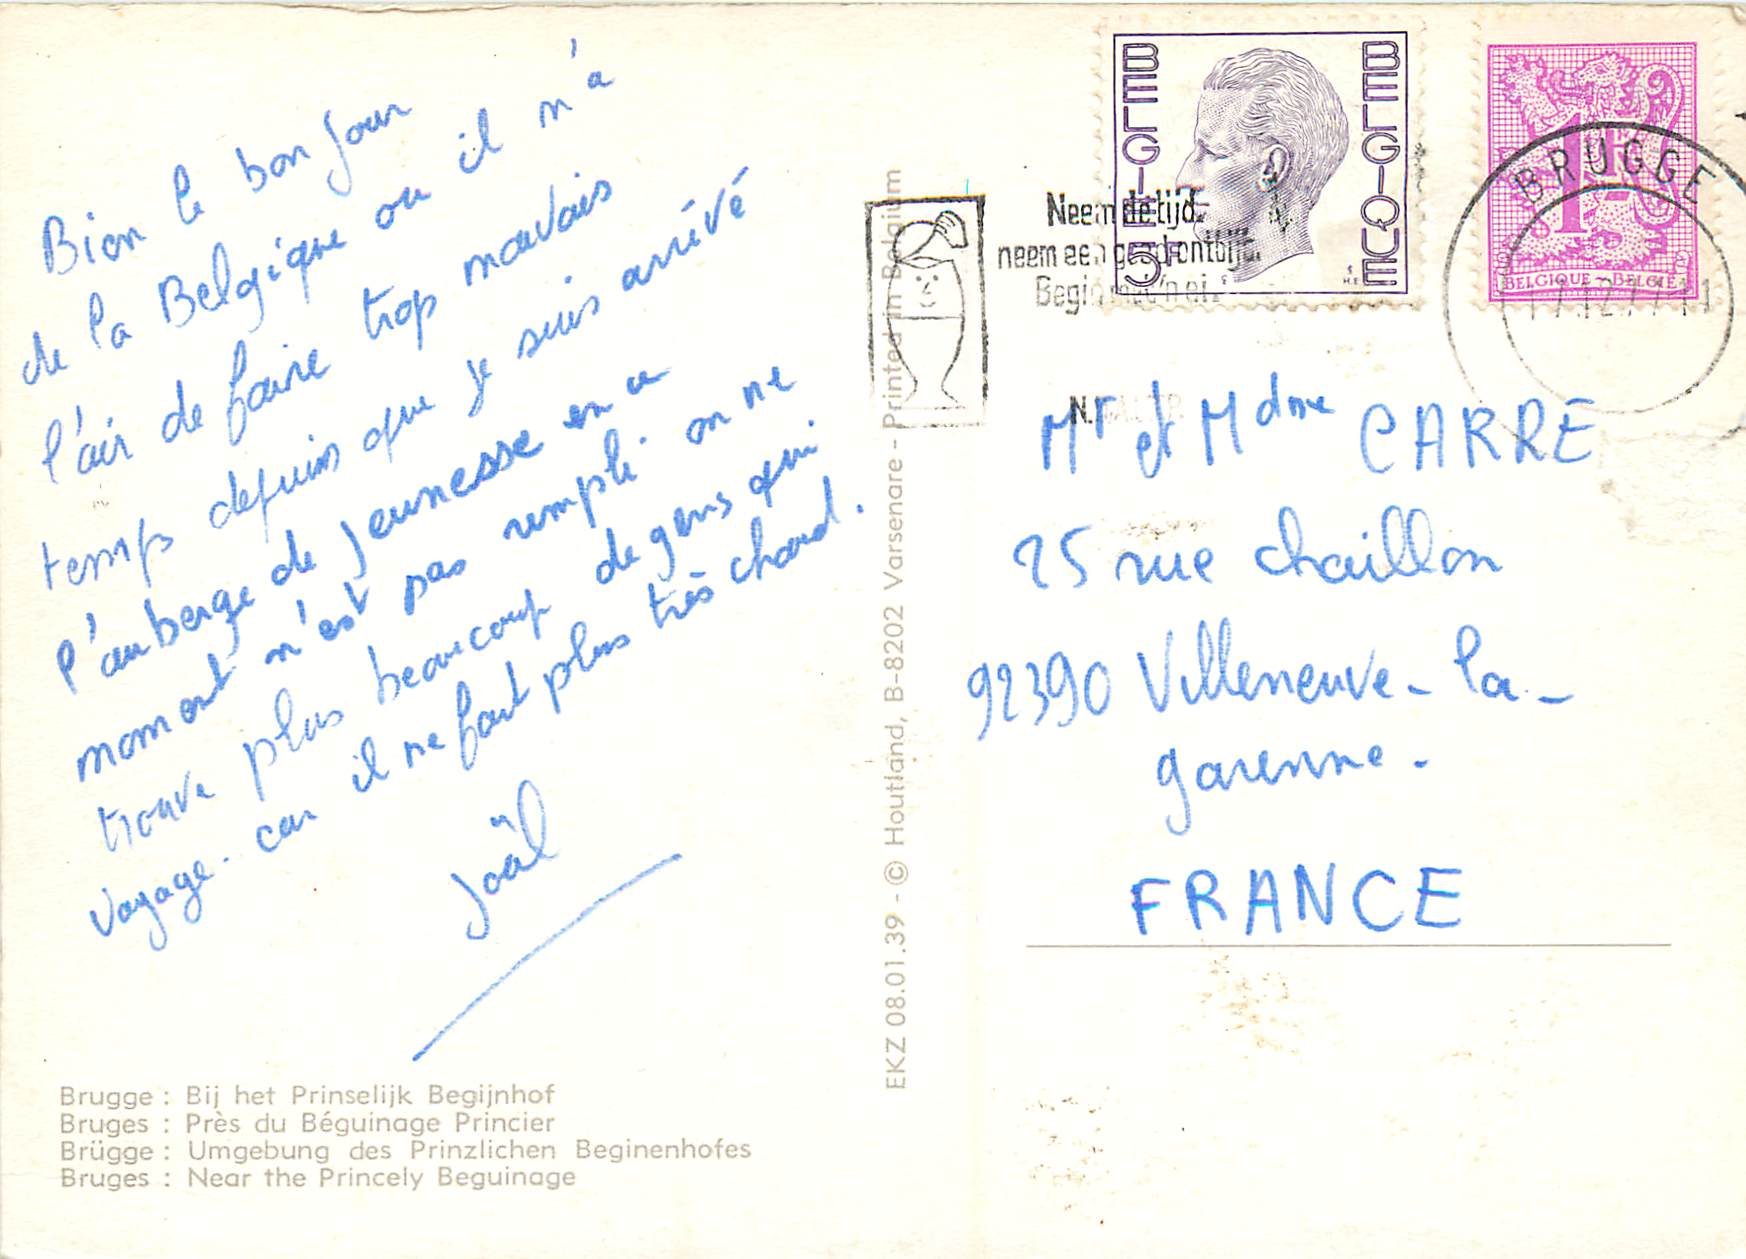 Bien le bonjour
de la Belgique ou il n'a
l'air de faire trop mauvais
temps depuis que je suis arrivé
l'auberge de jeunesse en ce
moment n'est pas rempli on ne
trouve plus beaucoup de gens qui
voyage. car il ne fait plus très chaud.
Joël
Brugge : Bij het Prinselijk Begijnhof
Bruges : Près du Béguinage Princier
Brügge : Umgebung des Prinzlichen Beginenhofes
Bruges : Near the Princely Beguinage
EKZ 08.01.39 - © Houtland, B-8202 Varsenare - Printed in Belgium
Neem de tijd.
neem een goed ontbijt.
Begin met 'n ei.
BELGIE
5F
BELGIQUE
1F
BELGIQUE - BELGIË
BRUGGE
Mr et Mdme CARRE
25 rue chaillon
92390 Villeneuve - la -
garenne.
FRANCE